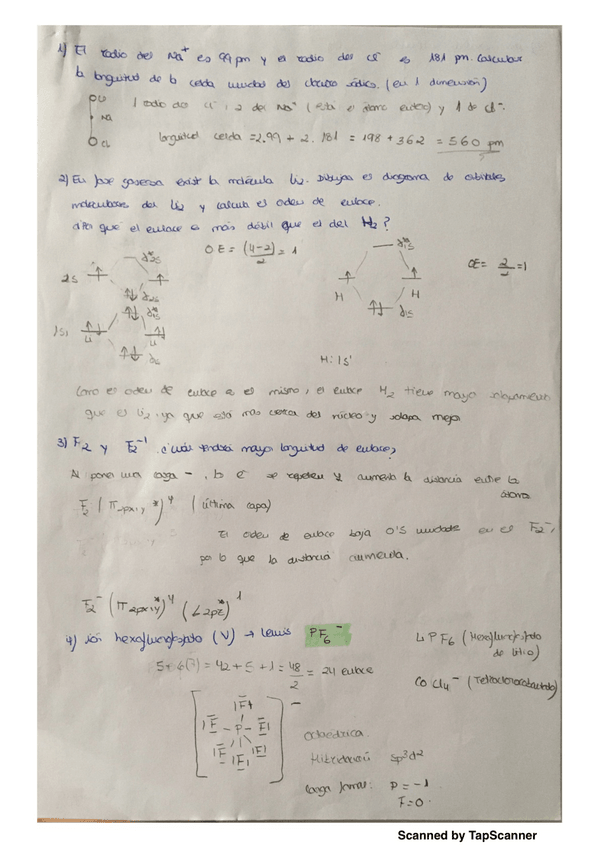 1) El radio del Na⁺ es 99 pm y el radio del Cl⁻ es 181 pm. Calcular
la longitud de la celda unidad del cloruro sódico. (en 1 dimensión)
Cl
Na
CL
1 radio de Cl⁻, 2 del Na⁺ (está el átomo entero) y 1 de Cl⁻.
longitud celda = 2·99 + 2·181 = 198 + 362 = 560 pm
2) En fase gaseosa existe la molécula Li₂. Dibuja el diagrama de orbitales
moleculares del Li₂ y calcula el orden de enlace.
¿Por qué el enlace es más débil que el del H₂?
OE = (4-2)/2 = 1
OE = 2/2 = 1
2s
1s
Li
Li
H
H
H: 1s¹
Como el orden de enlace es el mismo, el enlace H₂ tiene mayor solapamiento
que el Li₂ ya que está más cerca del núcleo y solapa mejor
3) F₂ y F₂⁻¹ ¿cuál tendrá mayor longitud de enlace?
Al poner una carga -, los e⁻ se repelen y aumenta la distancia entre los
átomos
F₂ (π2px,y*)⁴ (última capa)
El orden de enlace baja 0'5 unidades en el F₂⁻,
por lo que la distancia aumenta.
F₂⁻ (π2px,y*)⁴ (2pz*)¹
4) Ión hexafluorofosfato (V) → Lewis PF₆⁻
LiPF₆ (Hexafluorofosfato
de litio)
5 + 6(7) = 42 + 5 + 1 = 48/2 = 24 enlace
CoCl₄⁻ (Tetraclorocobaltato)
F F P F F F F
-
Octaédrica
Hibridación sp³d²
Carga formal: P = -1
F = 0
Scanned by TapScanner